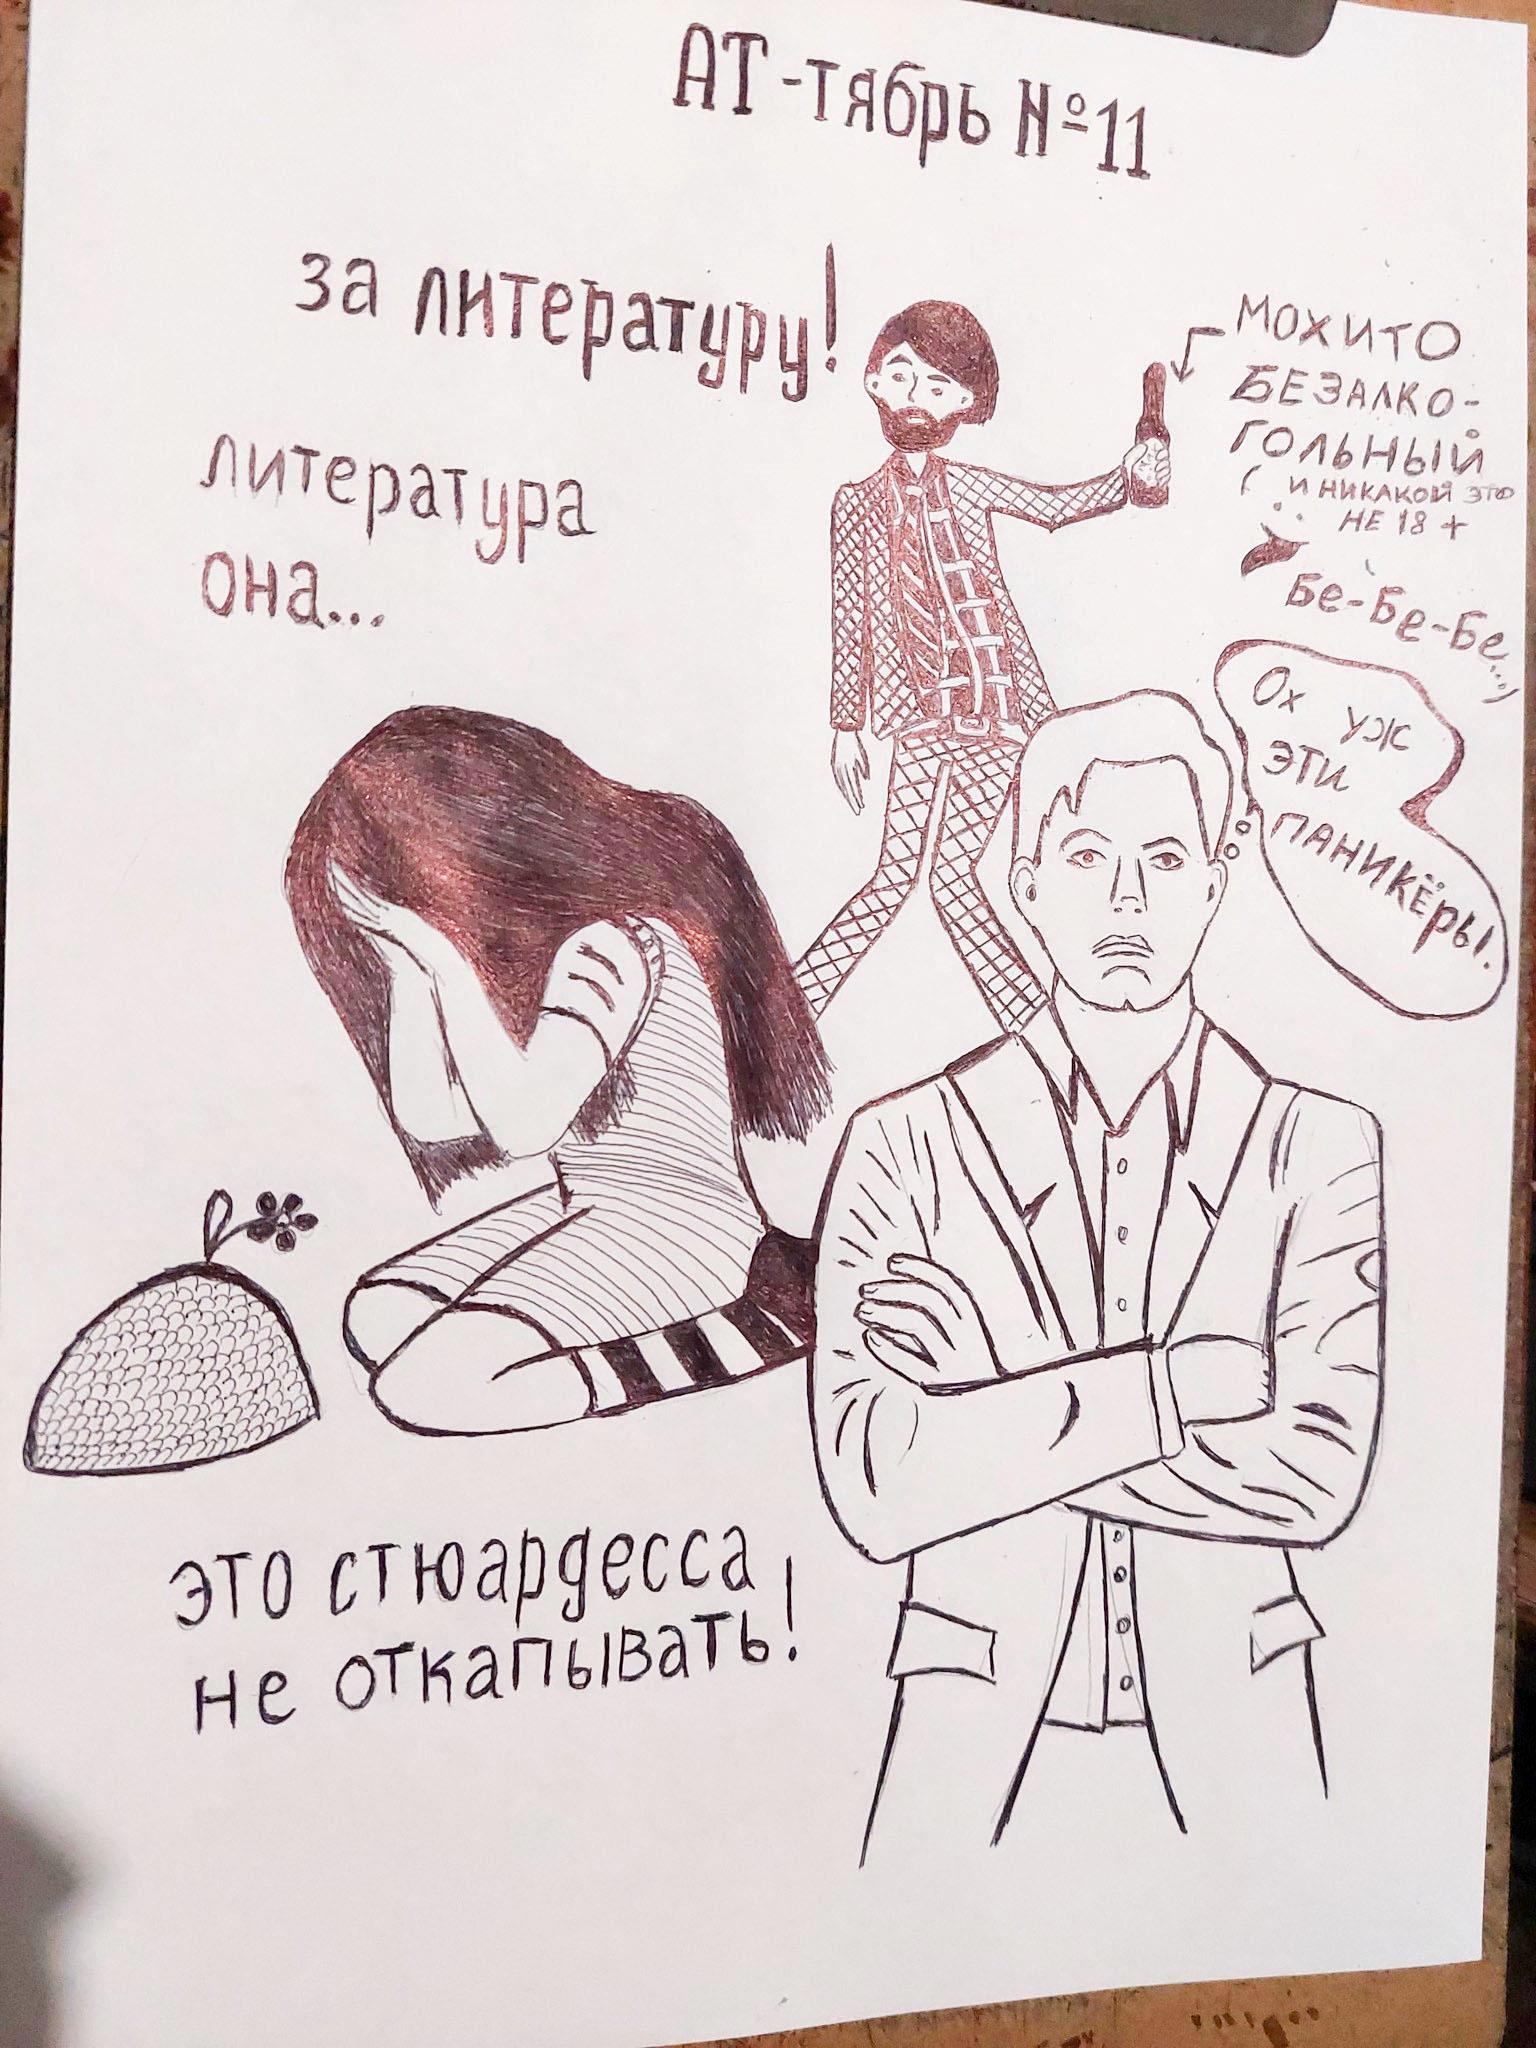 АТ-тябрь №11
за литературу!
литература
она...
МОХИТО
БЕЗАЛКО-
ГОЛЬНЫЙ
( И НИКАКОЙ ЭТО
НЕ 18+
Бе-Бе-Бе...)
Ох уж
эти
паникёры.
это стюардесса
не откапывать!